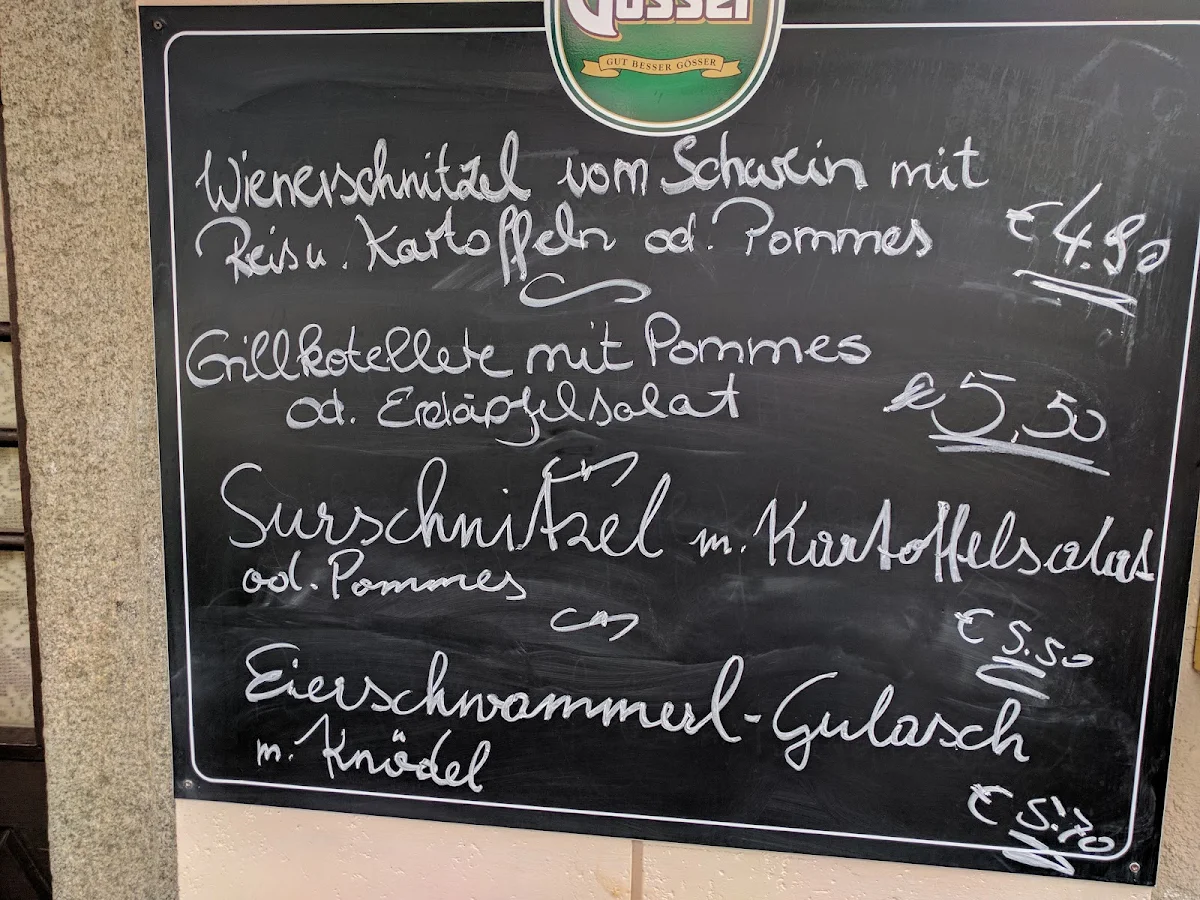 Gösser
GUT BESSER GÖSSER
Wienerschnitzel vom Schwein mit
Reis u. Kartoffeln od. Pommes € 4.90
Grillkotellete mit Pommes
od. Erdäpfelsalat € 5,50
Surschnitzel m. Kartoffelsalat
od. Pommes
€ 5.50
Eierschwammerl-Gulasch
m. Knödel
€ 5.70